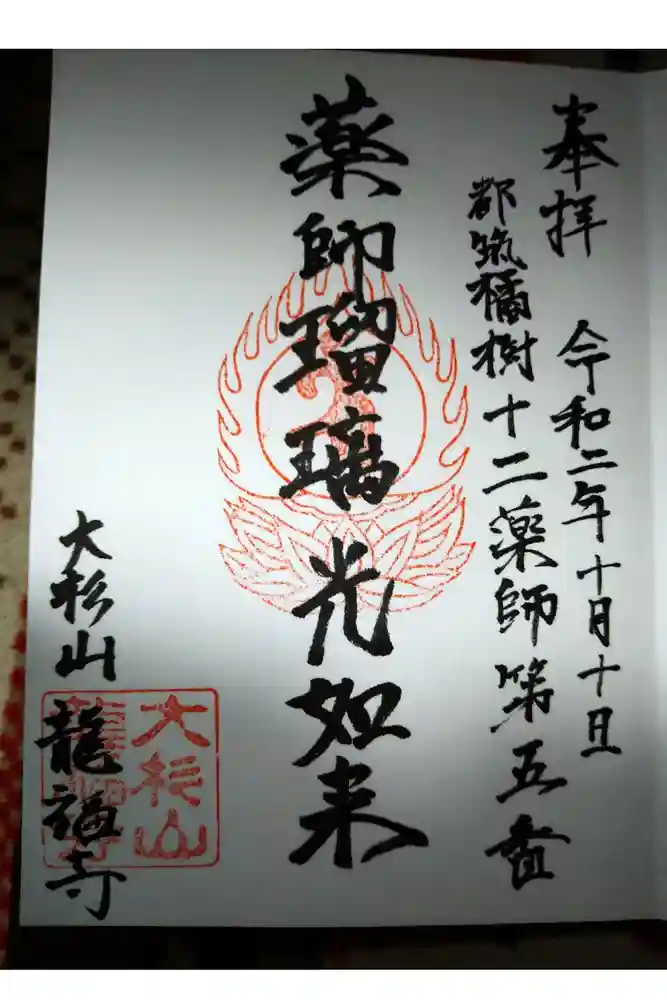 奉拝 令和二年十月十日
都筑橘樹十二薬師第五番
薬師瑠璃光如来
大杉山
龍福寺
大杉山
龍福寺